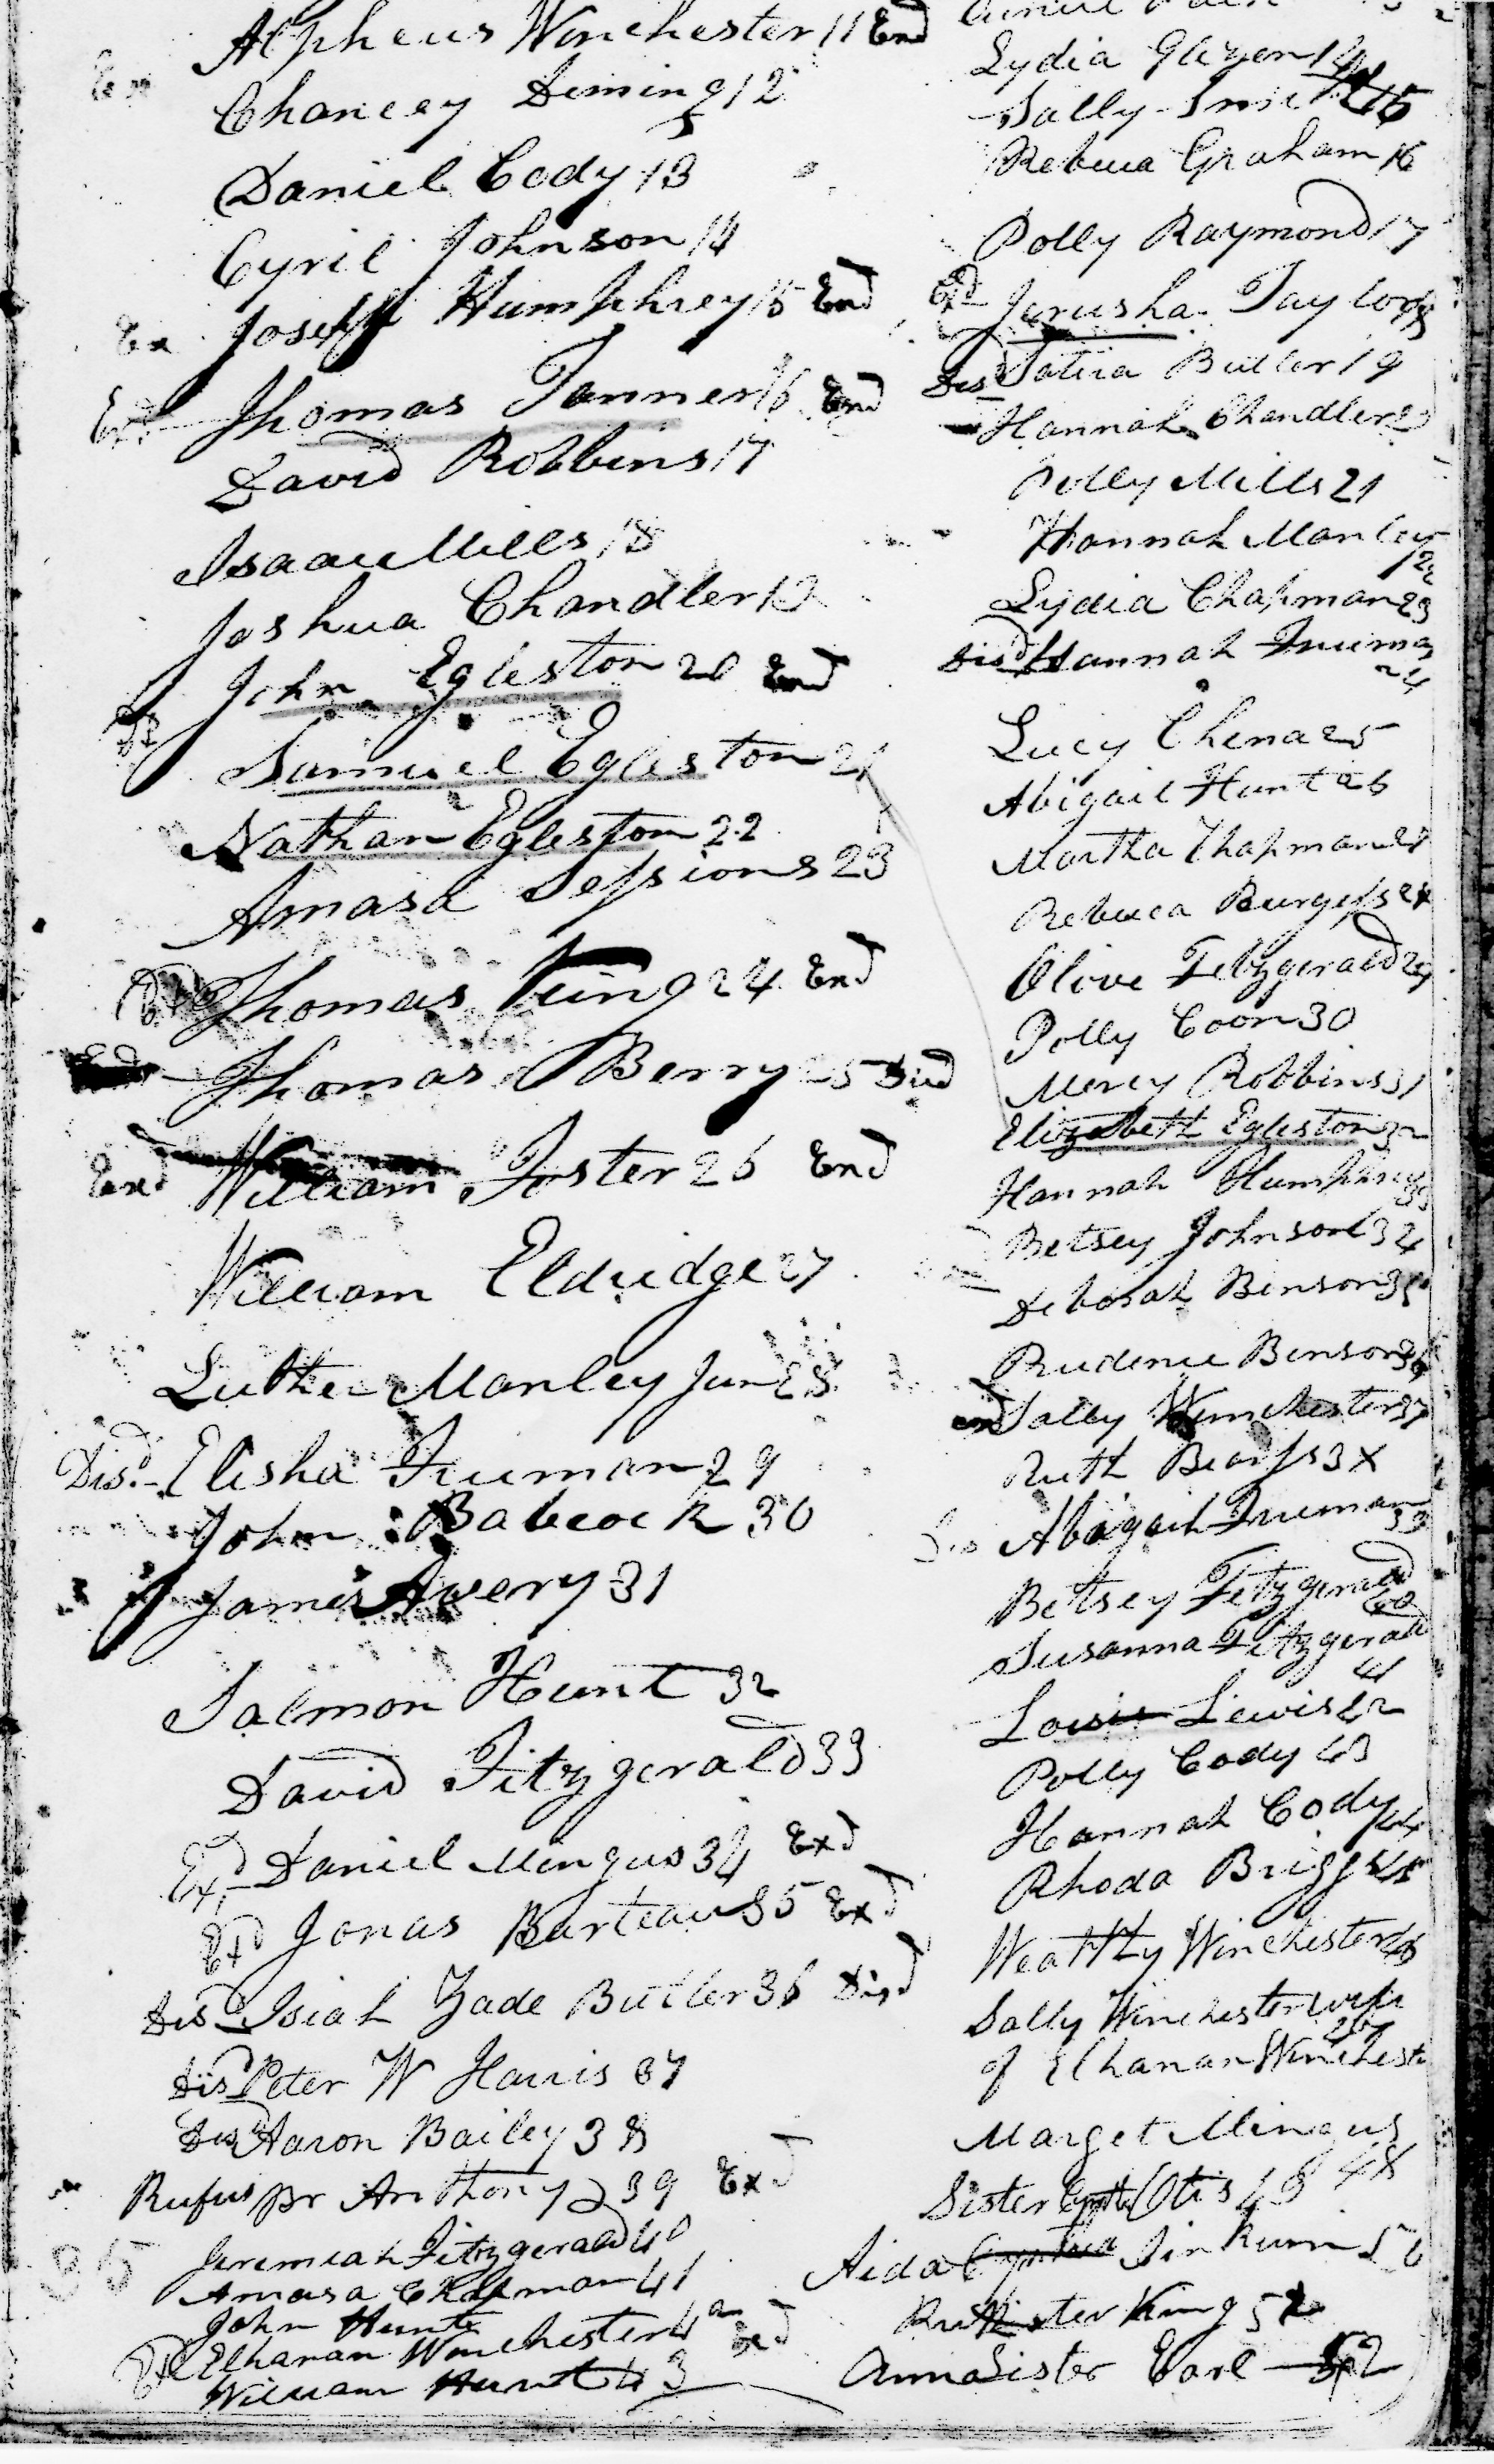 Alpheus Winchester 11 End
Ex
Chancey Deming 12
Daniel Cody 13
Cyril Johnson 14
Ex Joseph Humphrey 15 End
Exd Thomas Tanner 16 End
David Robbins 17
Isaac Mills 18
Joshua Chandler 19
John Egleston 20 End
Samuel Egleston 21
Nathan Egleston 22
Amasa Sessions 23
Thomas King 24 End
Thomas Berry 25 Died
Exd William Foster 26 End
William Eldridge 27
Luther Manley Jun 28
Disd Elisha Truman 29
John Babcock 30
James Avery 31
Salmon Hunt 32
David Fitzgerald 33
Exd Daniel Mingus 34 Exd
Exd Jonas Barteau 35 Exd
Disd Isiah Zade Butler 36 Disd
Disd Peter W Harris 37
Disd Aaron Bailey 38
Rufus pr Anthony 39 Exd
35 Jeremiah Fitzgerald 40
Amasa Chapman 41
John Hunt
Exd Elhanan Winchester 42 Exd
William Hunt 43
Lydia Glazen 14
Sally Smith 15
Rebecca Graham 16
Polly Raymond 17
Exd Jerusha Taylor 18
Disd Butler 19
Hannah Chandler 20
Polly Mills 21
Hannah Manley 22
Lydia Chapman 23
Disd Hannah Truman
24
Lucy Chena 25
Abigail Hunt 26
Martha Chapman 27
Rebecca Burgess 28
Olive Fitzgerald 29
Polly Coon 30
Mercy Robbins 31
Elizabeth Egleston 32
Hannah Humphrey 33
Betsey Johnson 34
Deborah Benson 35
Prudence Benson 36
Sally Winchester 37
Ruth Bearss 38
Dis Abigail Truman 39
Betsey Fitzgerald
40
Susanna Fitzgerald
41
Lois Lewis 42
Polly Cody 43
Hannah Cody 44
Rhoda Briggs 45
Wealthy Winchester 46
Sally Winchester wife
47
of Elhanan Winchest
Marget Mingus
48
Sister Otis 49
Aida 50
King 51
Anna Sister Earl 52